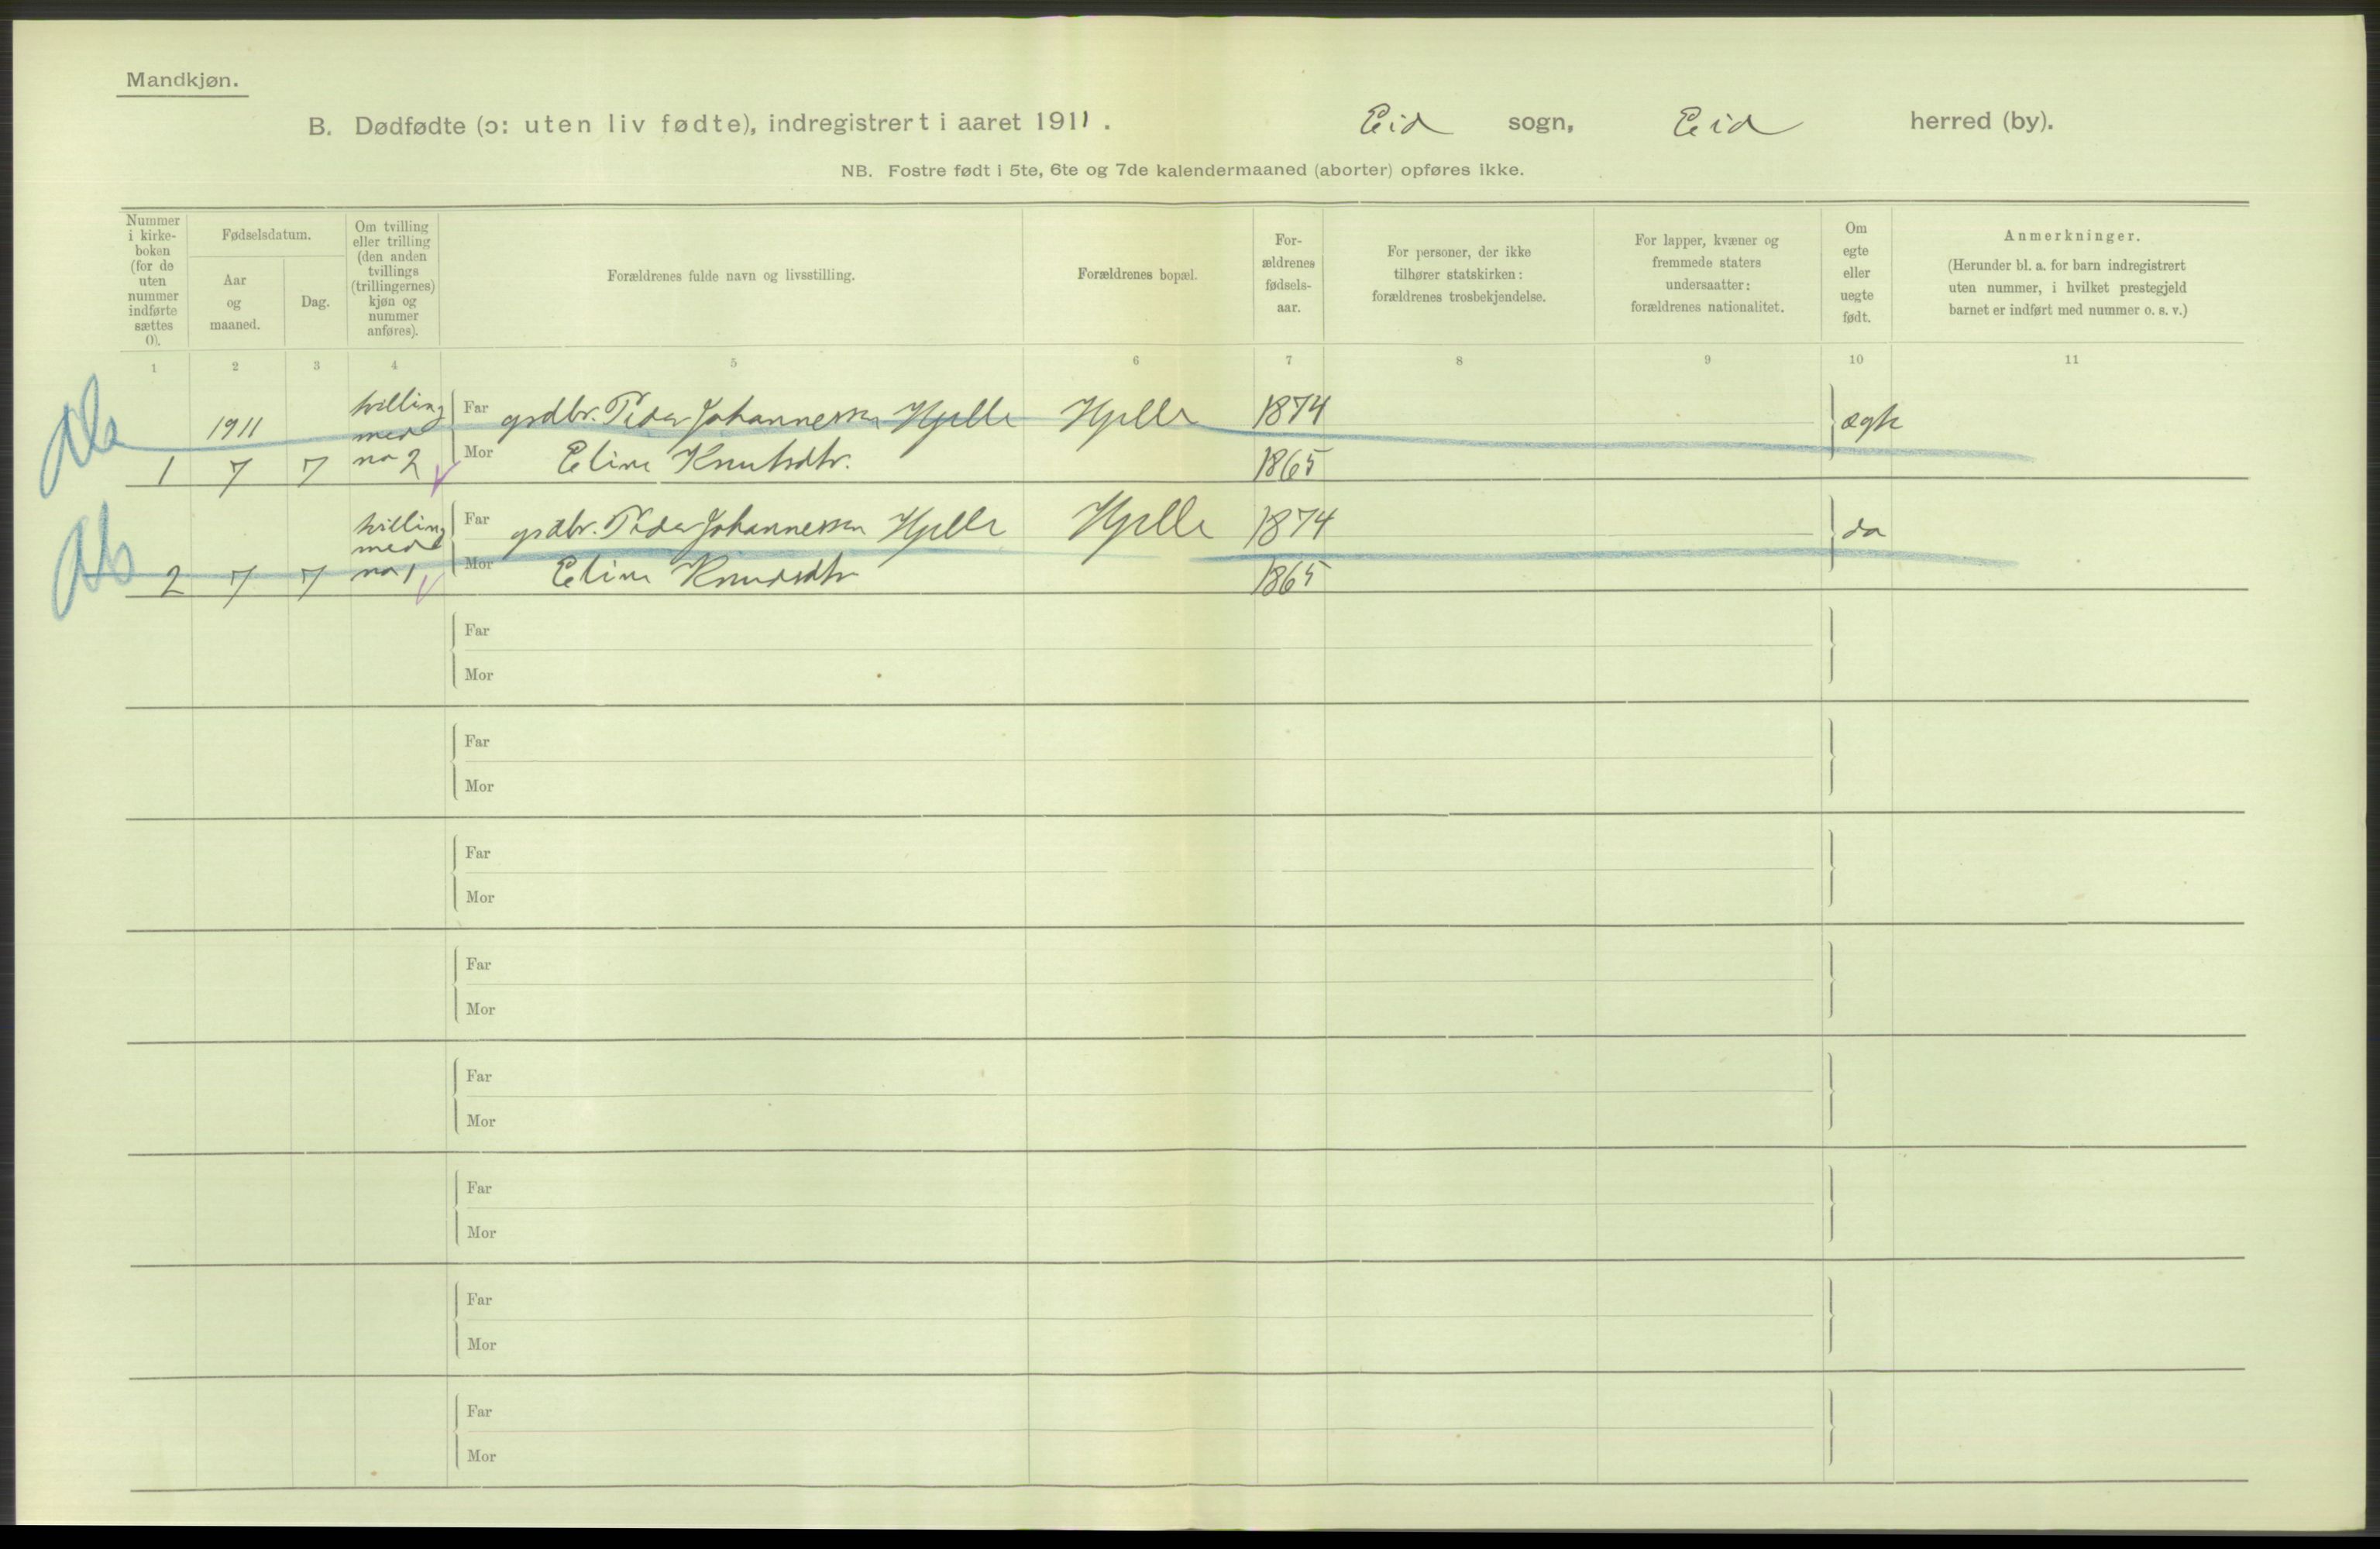 Mandkjøn.
B. Dødfødte (ɔ: uten liv fødte), indregistrert i aaret 1911. Eid sogn, Eid herred (by).
NB. Fostre født i 5te, 6te og 7de kalendermaaned (aborter) opføres ikke.
Nummer
i kirke-
boken
(for de
uten
nummer
indførte
sættes
0).
Fødselsdatum.
Aar
og
maaned.
Dag.
Om tvilling
eller trilling
(den anden
tvillings
(trillingernes)
kjøn og
nummer
anføres).
Forældrenes fulde navn og livsstilling.
Forældrenes bopæl.
For-
ældrenes
fødsels-
aar.
For personer, der ikke
tilhører statskirken:
forældrenes trosbekjendelse.
For lapper, kvæner og
fremmede staters
undersaatter:
forældrenes nationalitet.
Om
egte
eller
uegte
født.
Anmerkninger.
(Herunder bl. a. for barn indregistrert
uten nummer, i hvilket prestegjeld
barnet er indført med nummer o. s. v.)
1 2 3 4 5 6 7 8 9 10 11
1911
1 7 7
tvilling
med
no 2
Far grdbr. Peder Johannessen Hjelle Hjelle 1874 ægte
Mor Eline Knutsdtr. 1865
2 7 7
tvilling
med
no 1
Far grdbr. Peder Johannessen Hjelle Hjelle 1874 do
Mor Eline Knudsdtr 1865
Far
Mor
Far
Mor
Far
Mor
Far
Mor
Far
Mor
Far
Mor
Far
Mor
Far
Mor